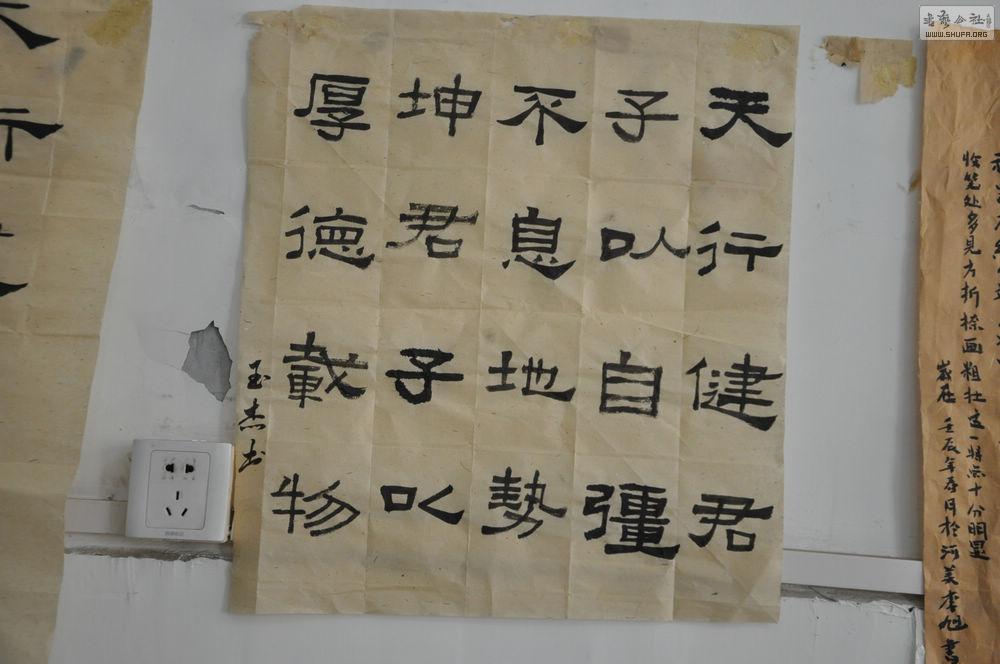 天行健君
子以自彊
不息地勢
坤君子以
厚德載物
玉杰书
收笔处多見方折捺画粗壮这一特点十分明显
歲在壬辰年春月於河美李旭書
书艺公社
WWW.SHUFA.ORG